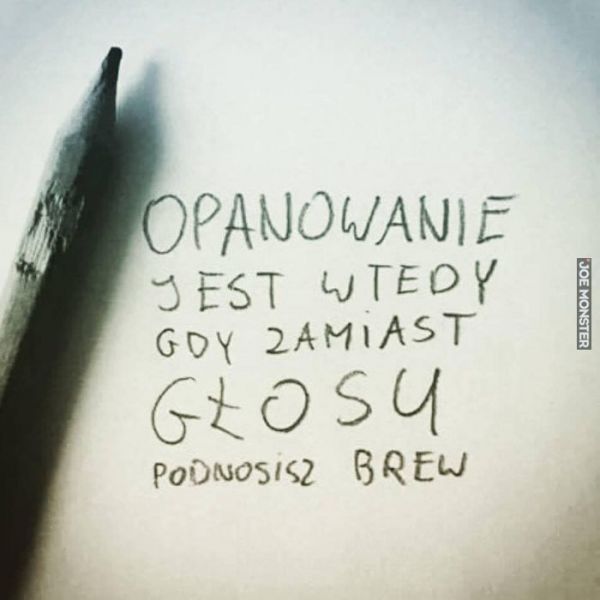 OPANOWANIE
JEST WTEDY
GDY ZAMIAST
GŁOSU
PODNOSISZ BREW
JOE MONSTER